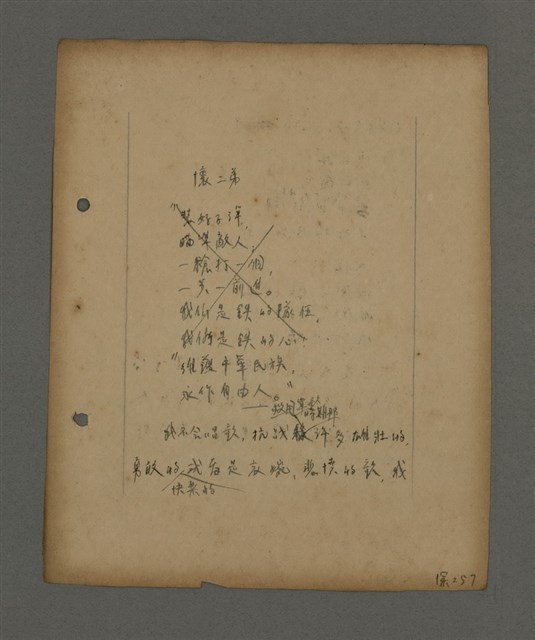 懷二弟
"裝好子彈,
瞄準敵人,
一槍打一個,
一步一前進。
我們是鐵的隊伍,
我們是鐵的心,
"維護中華民族,
永作自由人。"
——救國軍歌
時期那
我不會唱歌,抗戰 許多雄壯的,
勇敢的或者是哀婉、悲憤的歌,我
快樂的
深257